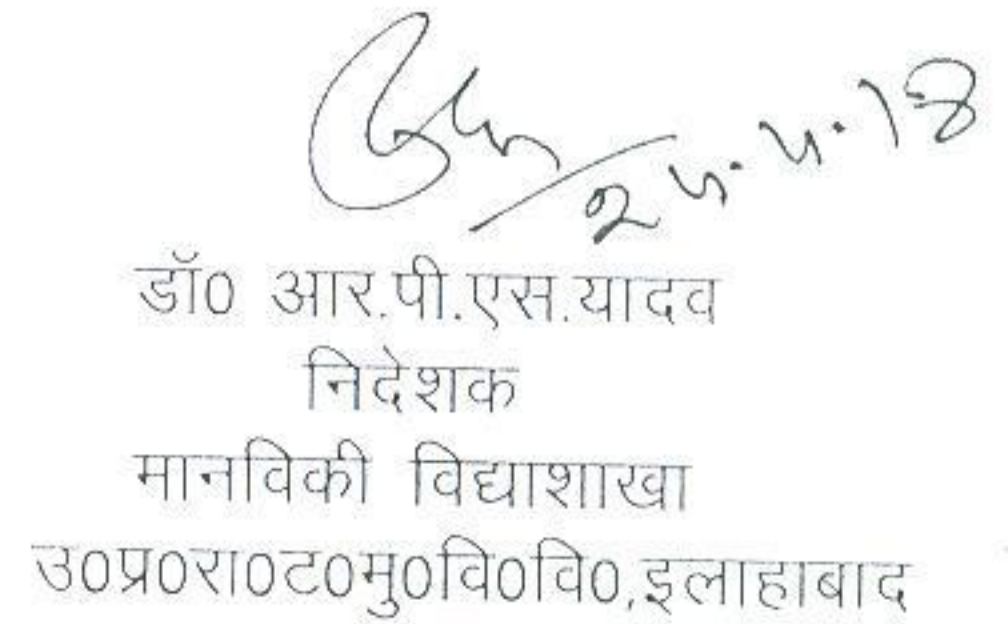 डॉ0 आर.पी.एस.यादव
निदेशक
मानविकी विद्याशाखा
उ0प्र0रा0ट0मु0वि0वि0,इलाहाबाद